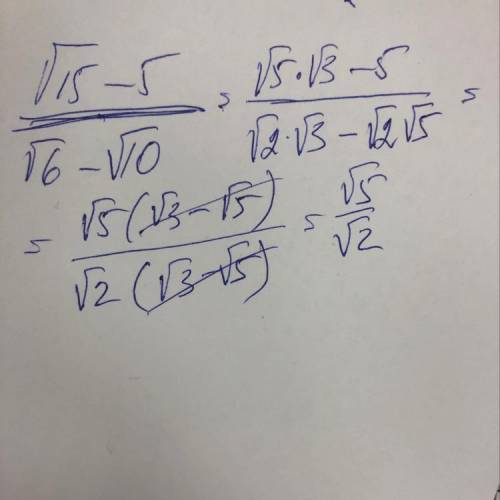 (√15 − 5)/(√6 − √10) = (√5·√3 − 5)/(√2·√3 − √2√5) =
= (√5(√3 − √5))/(√2(√3 − √5)) = √5/√2